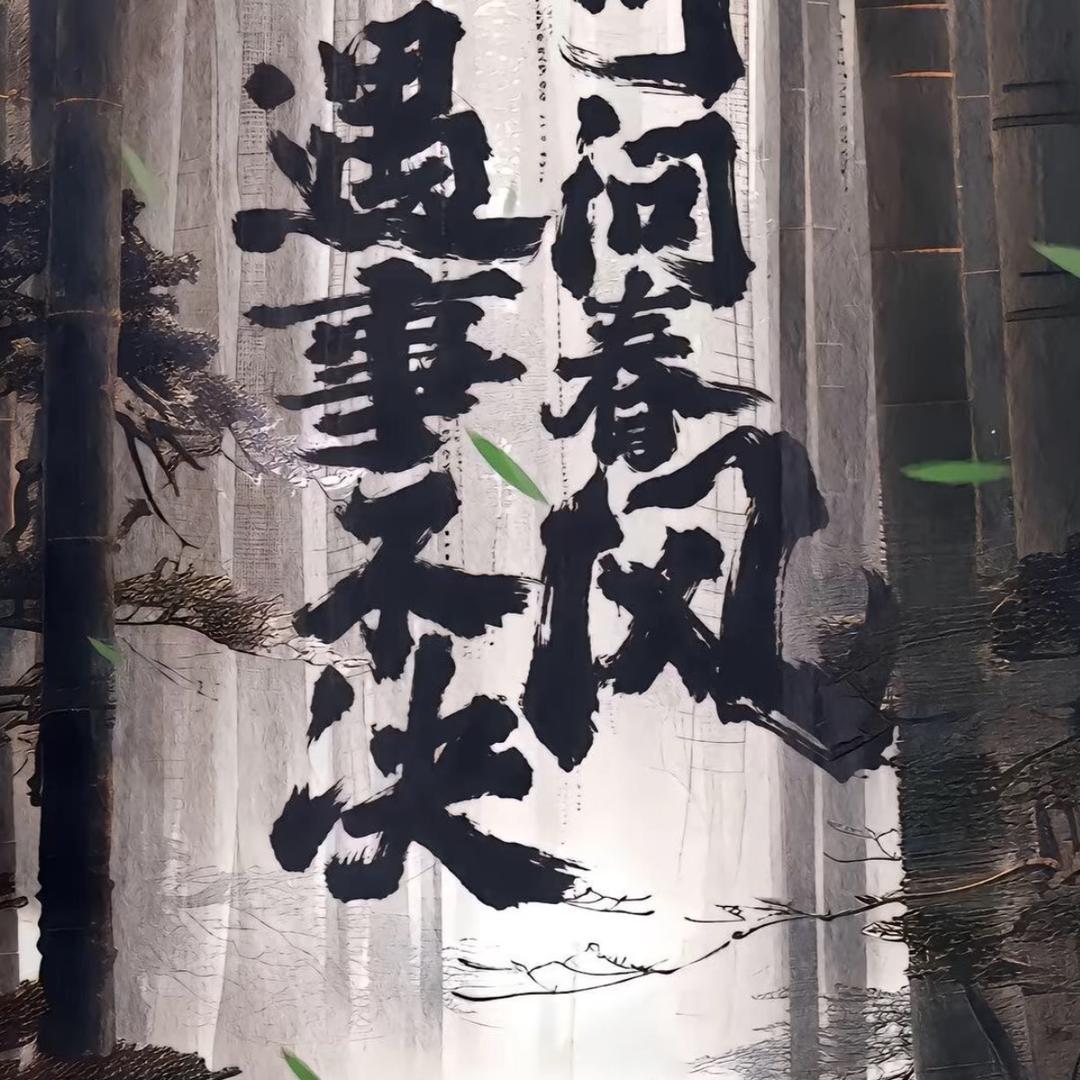 遇事不决
问春风